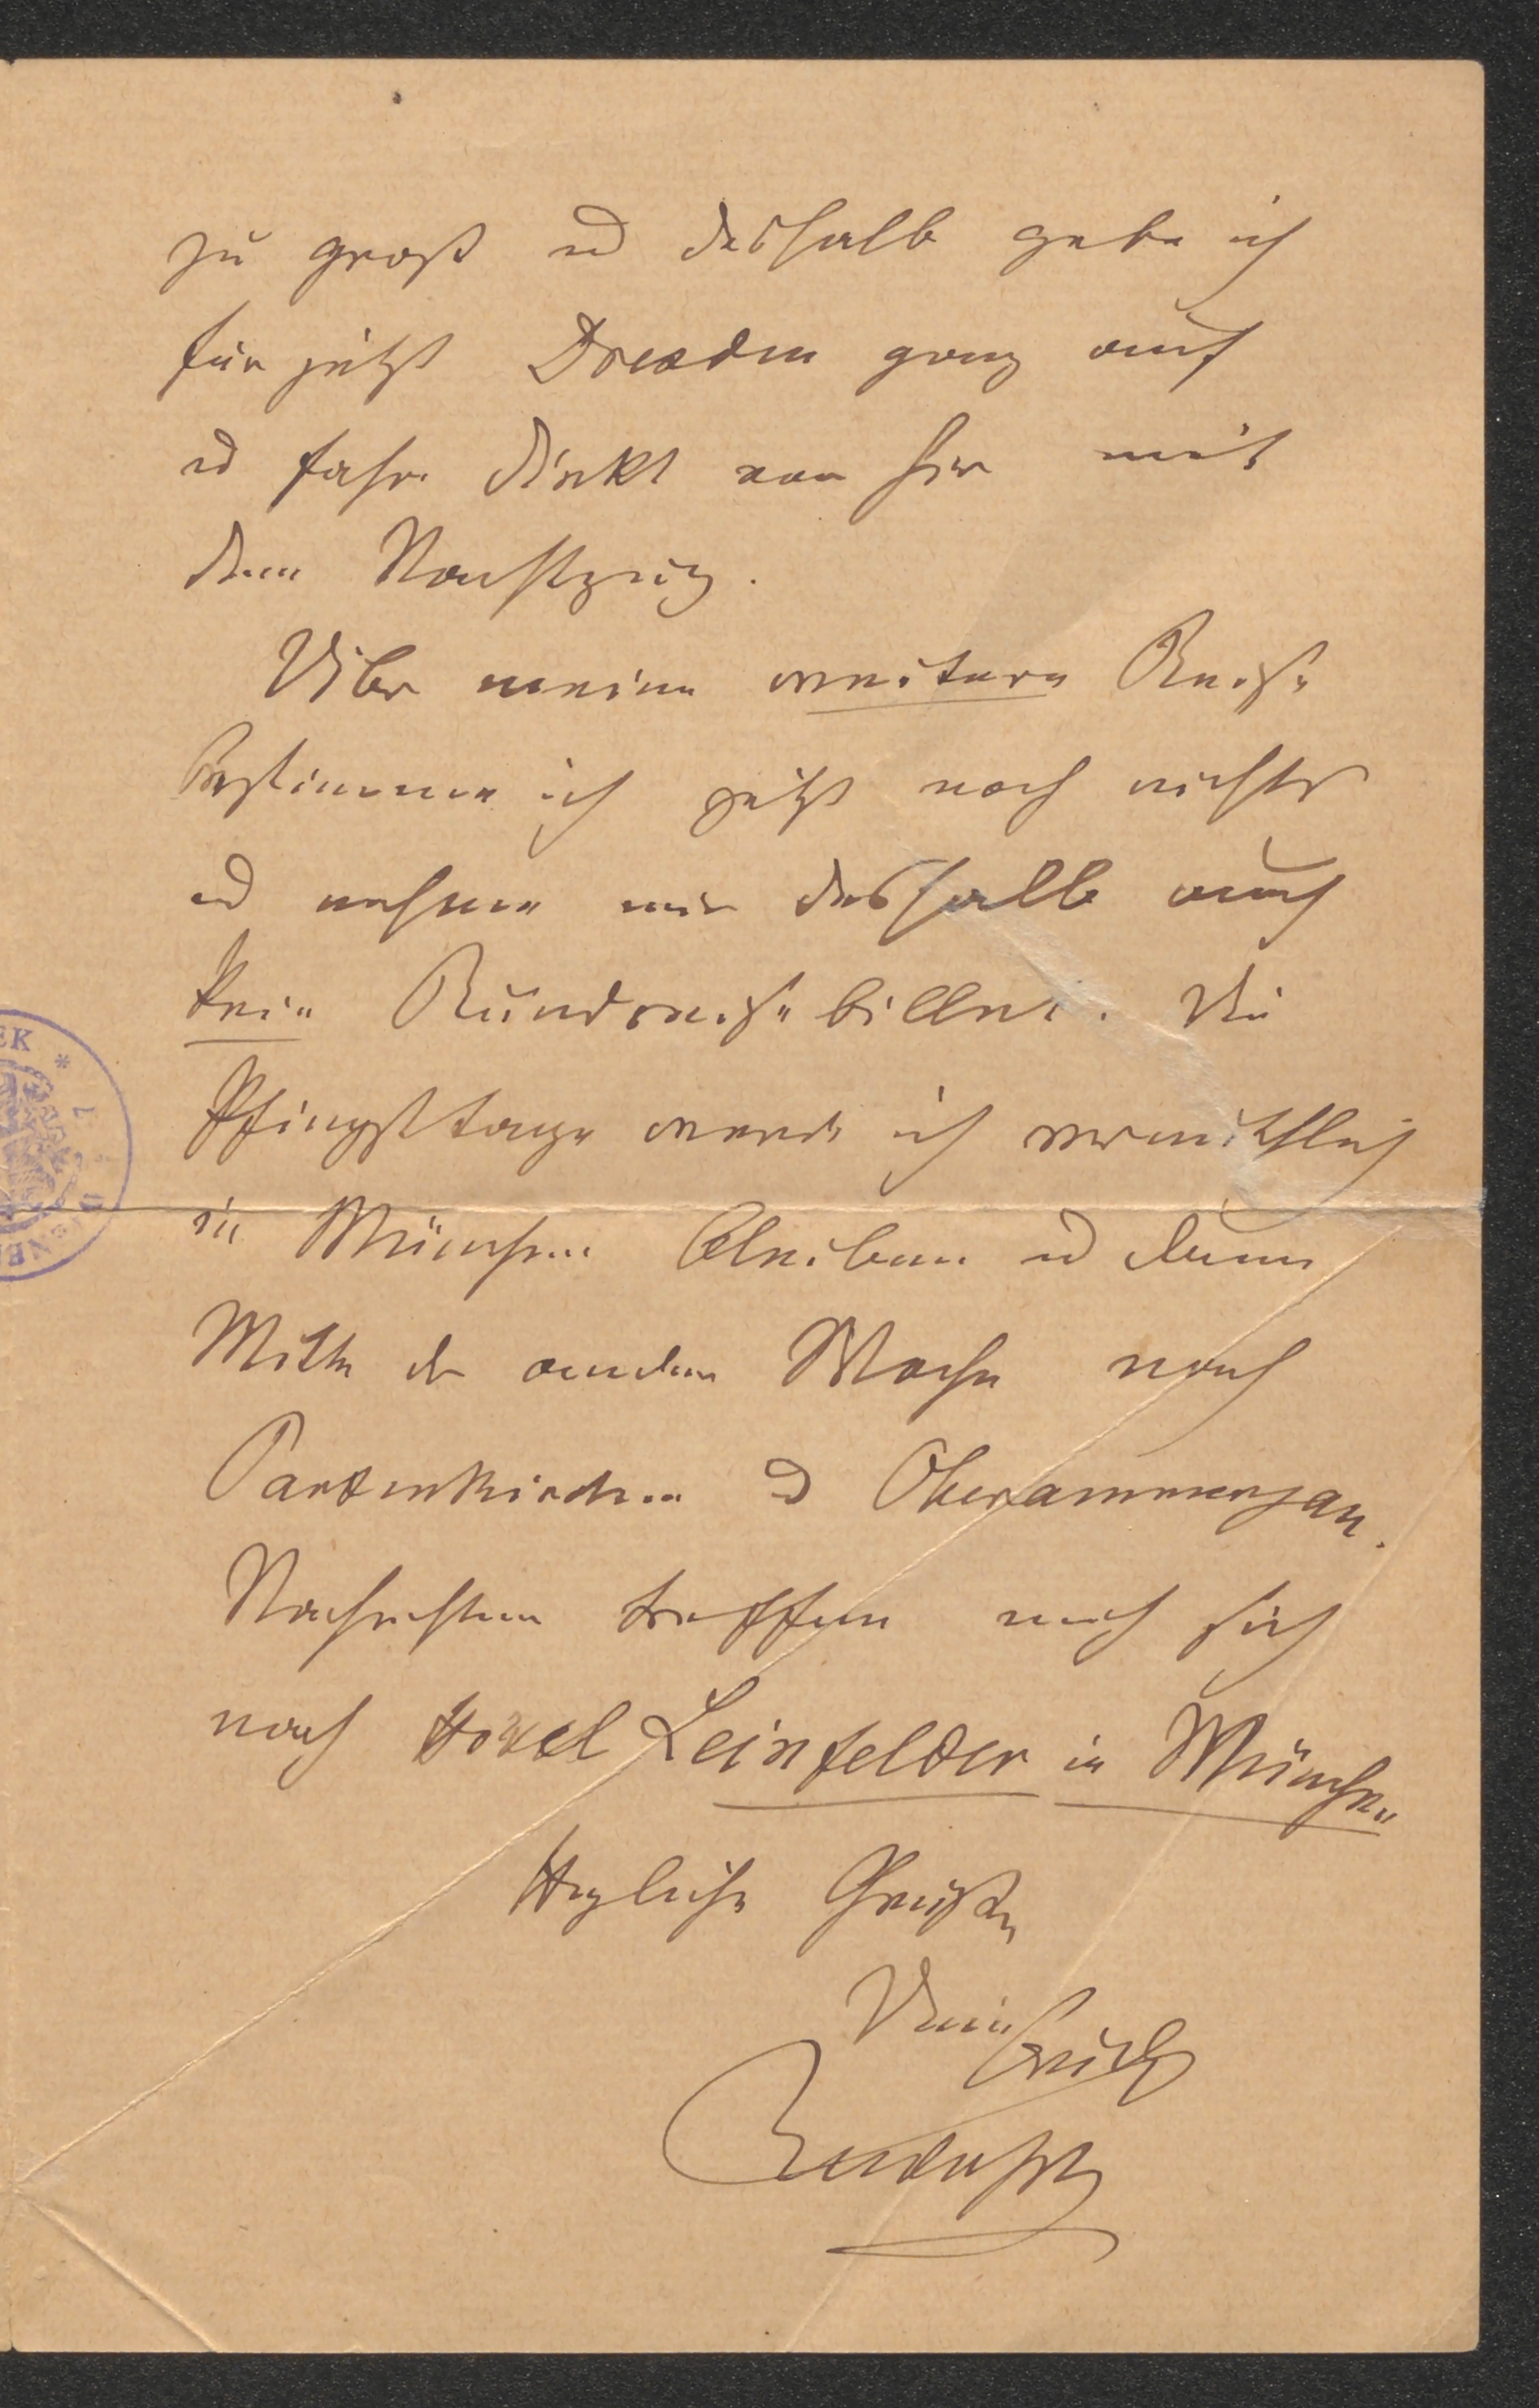 zu groß u deshalb gebe ich
für jetzt Dresden ganz auf
u fahre direkt von hier mit
dem Nachtzug.
Über meine weitere Reise
bestimme ich jetzt noch nichts
u nehme mir deshalb auch
kein Rundreisebillet. Die
Pfingsttage werde ich vermuthlich
in München bleiben u dann
Mitte der andern Woche nach
Partenkirchen u Oberammergau.
Nachrichten treffen mich
nach Hotel Leinfelder in München
Herzliche Grüße
Dein
EK *